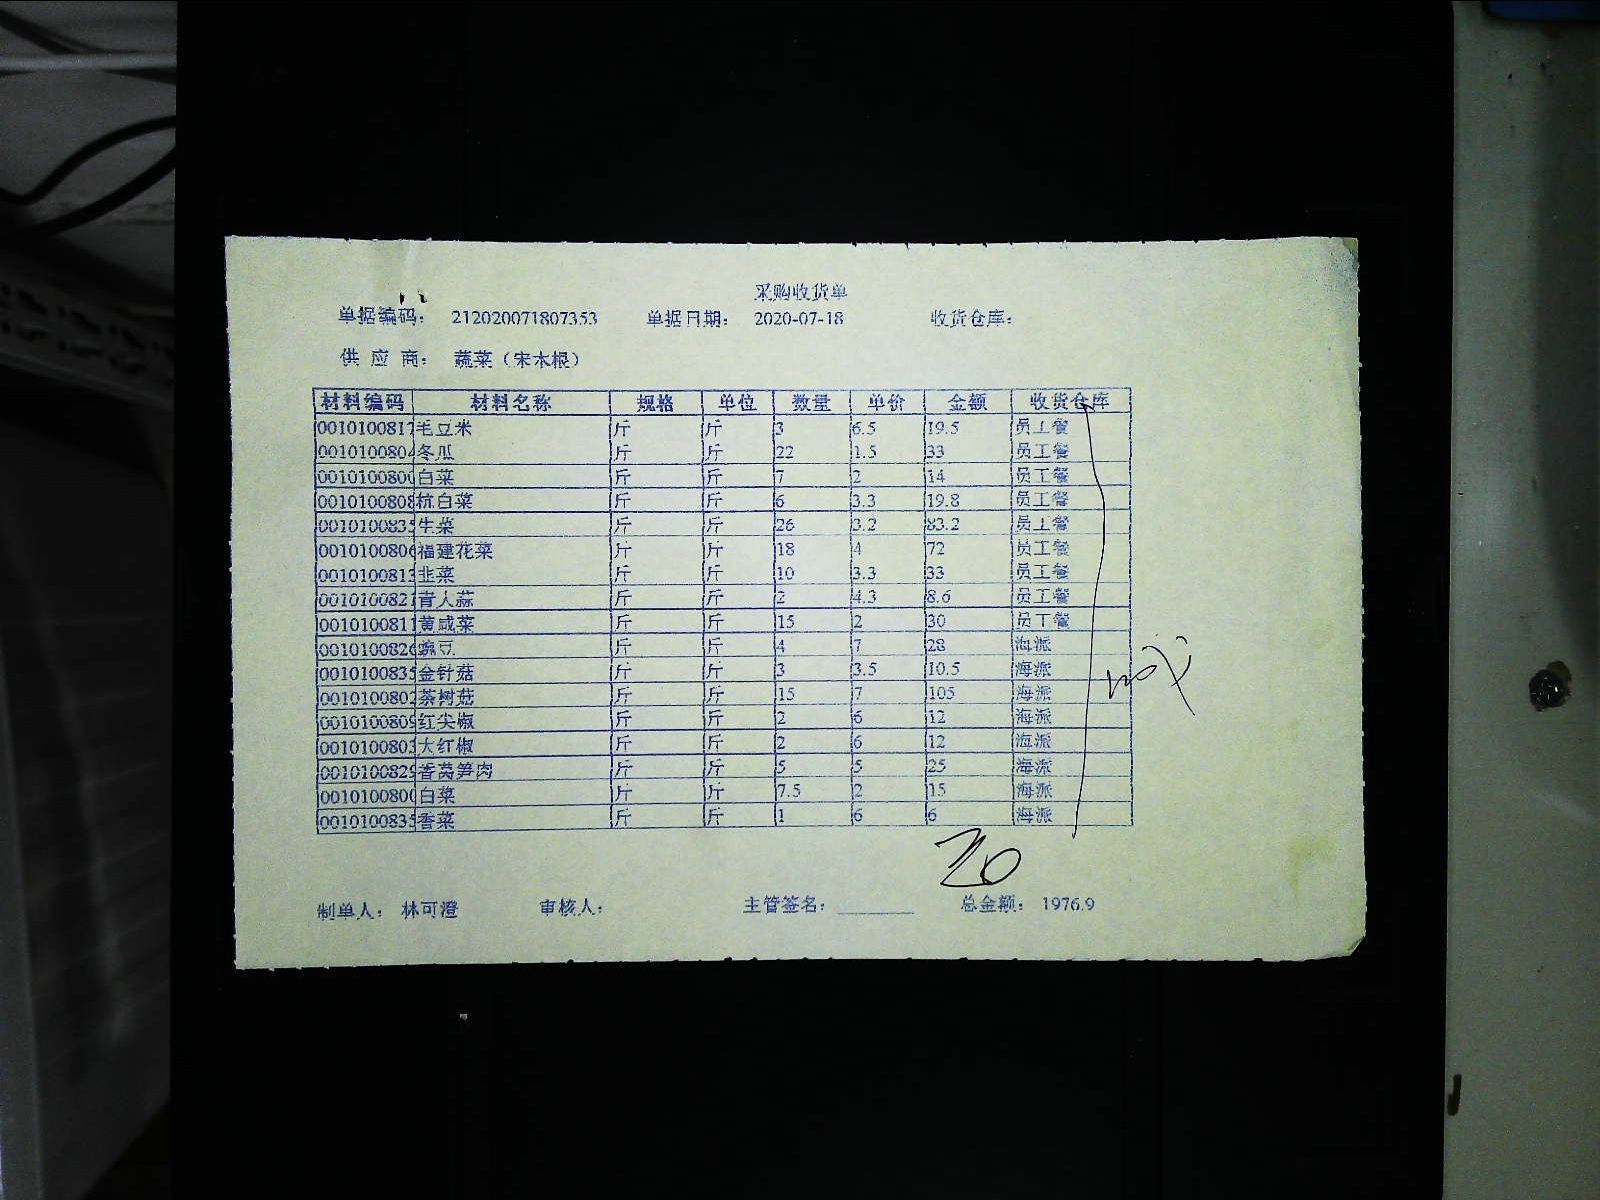 采购收货单
单据编码： 212020071807353 单据日期： 2020-07-18 收货仓库：
供 应 商： 蔬菜（宋本根）
材料编码 材料名称 规格 单位 数量 单价 金额 收货仓库
0010100817 毛豆米 斤 斤 3 6.5 19.5 员工餐
001010080 冬瓜 斤 斤 22 1.5 33 员工餐
001010080 白菜 斤 斤 7 2 14 员工餐
0010100808 杭白菜 斤 斤 6 3.3 19.8 员工餐
0010100835 生菜 斤 斤 26 3.2 83.2 员工餐
001010080 福建花菜 斤 斤 18 4 72 员工餐
0010100813 韭菜 斤 斤 10 3.3 33 员工餐
001010082 青大蒜 斤 斤 2 4.3 8.6 员工餐
0010100811 黄咸菜 斤 斤 15 2 30 员工餐
001010082 豌豆 斤 斤 4 7 28 海派
0010100835 金针菇 斤 斤 3 3.5 10.5 海派
0010100802 茶树菇 斤 斤 15 7 105 海派
0010100809 红尖椒 斤 斤 2 6 12 海派
0010100803 大红椒 斤 斤 2 6 12 海派
0010100829 香莴笋肉 斤 斤 5 5 25 海派
001010080 白菜 斤 斤 7.5 2 15 海派
0010100835 香菜 斤 斤 1 6 6 海派
20
制单人： 林可澄 审核人： 主管签名： 总金额： 1976.9